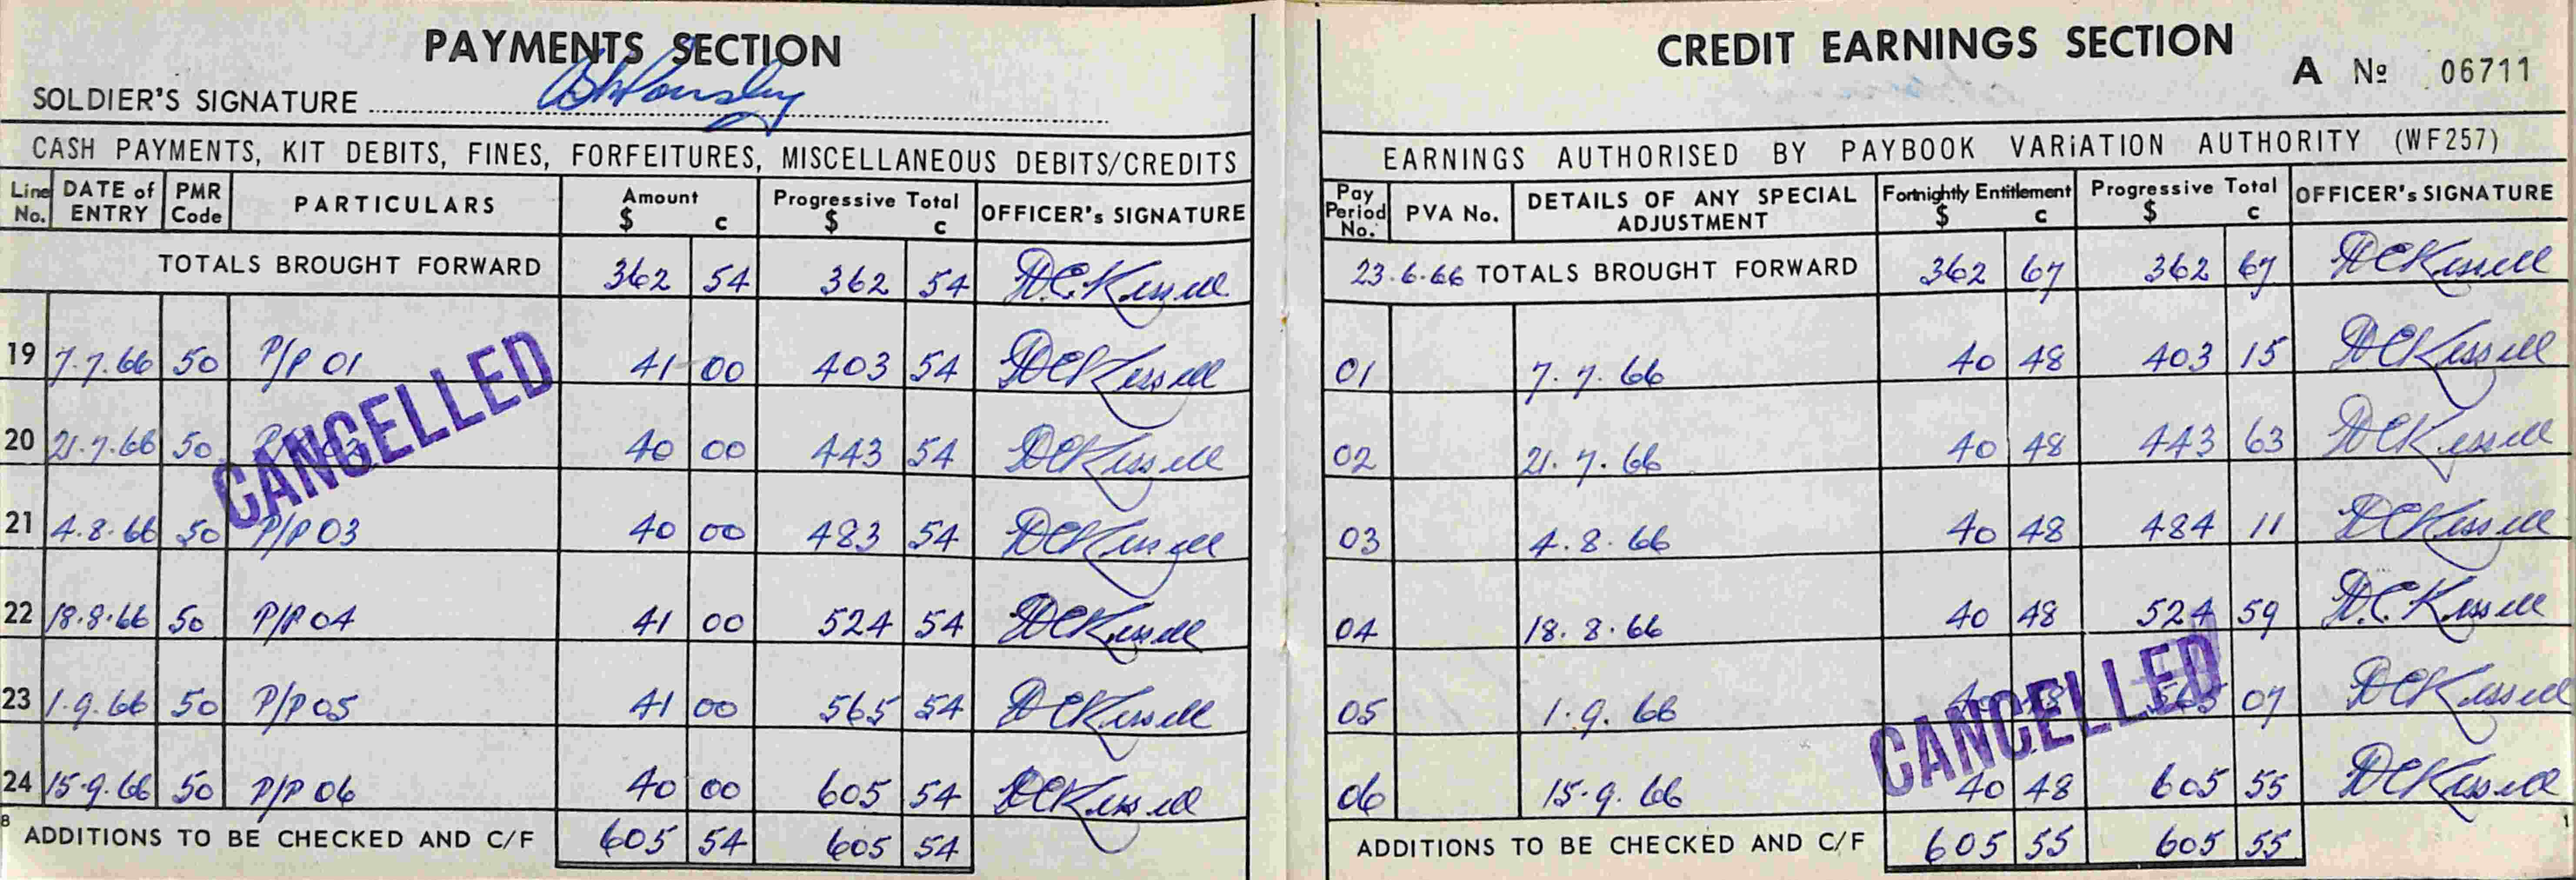 PAYMENTS SECTION
SOLDIER'S SIGNATURE
CASH PAYMENTS, KIT DEBITS, FINES, FORFEITURES, MISCELLANEOUS DEBITS/CREDITS
Line No. DATE of ENTRY PMR Code PARTICULARS Amount $ c Progressive Total $ c OFFICER's SIGNATURE
TOTALS BROUGHT FORWARD 362 54 362 54 D.C.Kessell
19 7.7.66 50 P/P 01 41 00 403 54 DCKessell
20 21.7.66 50 40 00 443 54 DCKessell
21 4.8.66 50 P/P 03 40 00 483 54 DCKessell
22 18.8.66 50 P/P 04 41 00 524 54 DCKessell
23 1.9.66 50 P/P 05 41 00 565 54 DCKessell
24 15.9.66 50 P/P 06 40 00 605 54 DCKessell
CANCELLED
8 ADDITIONS TO BE CHECKED AND C/F 605 54 605 54
CREDIT EARNINGS SECTION
A No 06711
EARNINGS AUTHORISED BY PAYBOOK VARIATION AUTHORITY (WF257)
Pay Period No. PVA No. DETAILS OF ANY SPECIAL ADJUSTMENT Fortnightly Entitlement $ c Progressive Total $ c OFFICER's SIGNATURE
23.6.66 TOTALS BROUGHT FORWARD 362 67 362 67 DCKessell
01 7.7.66 40 48 403 15 DCKessell
02 21.7.66 40 48 443 63 DCKessell
03 4.8.66 40 48 484 11 DCKessell
04 18.8.66 40 48 524 59 D.C.Kessell
05 1.9.66 40 48 565 07 DCKessell
06 15.9.66 40 48 605 55 DCKessell
CANCELLED
ADDITIONS TO BE CHECKED AND C/F 605 55 605 55